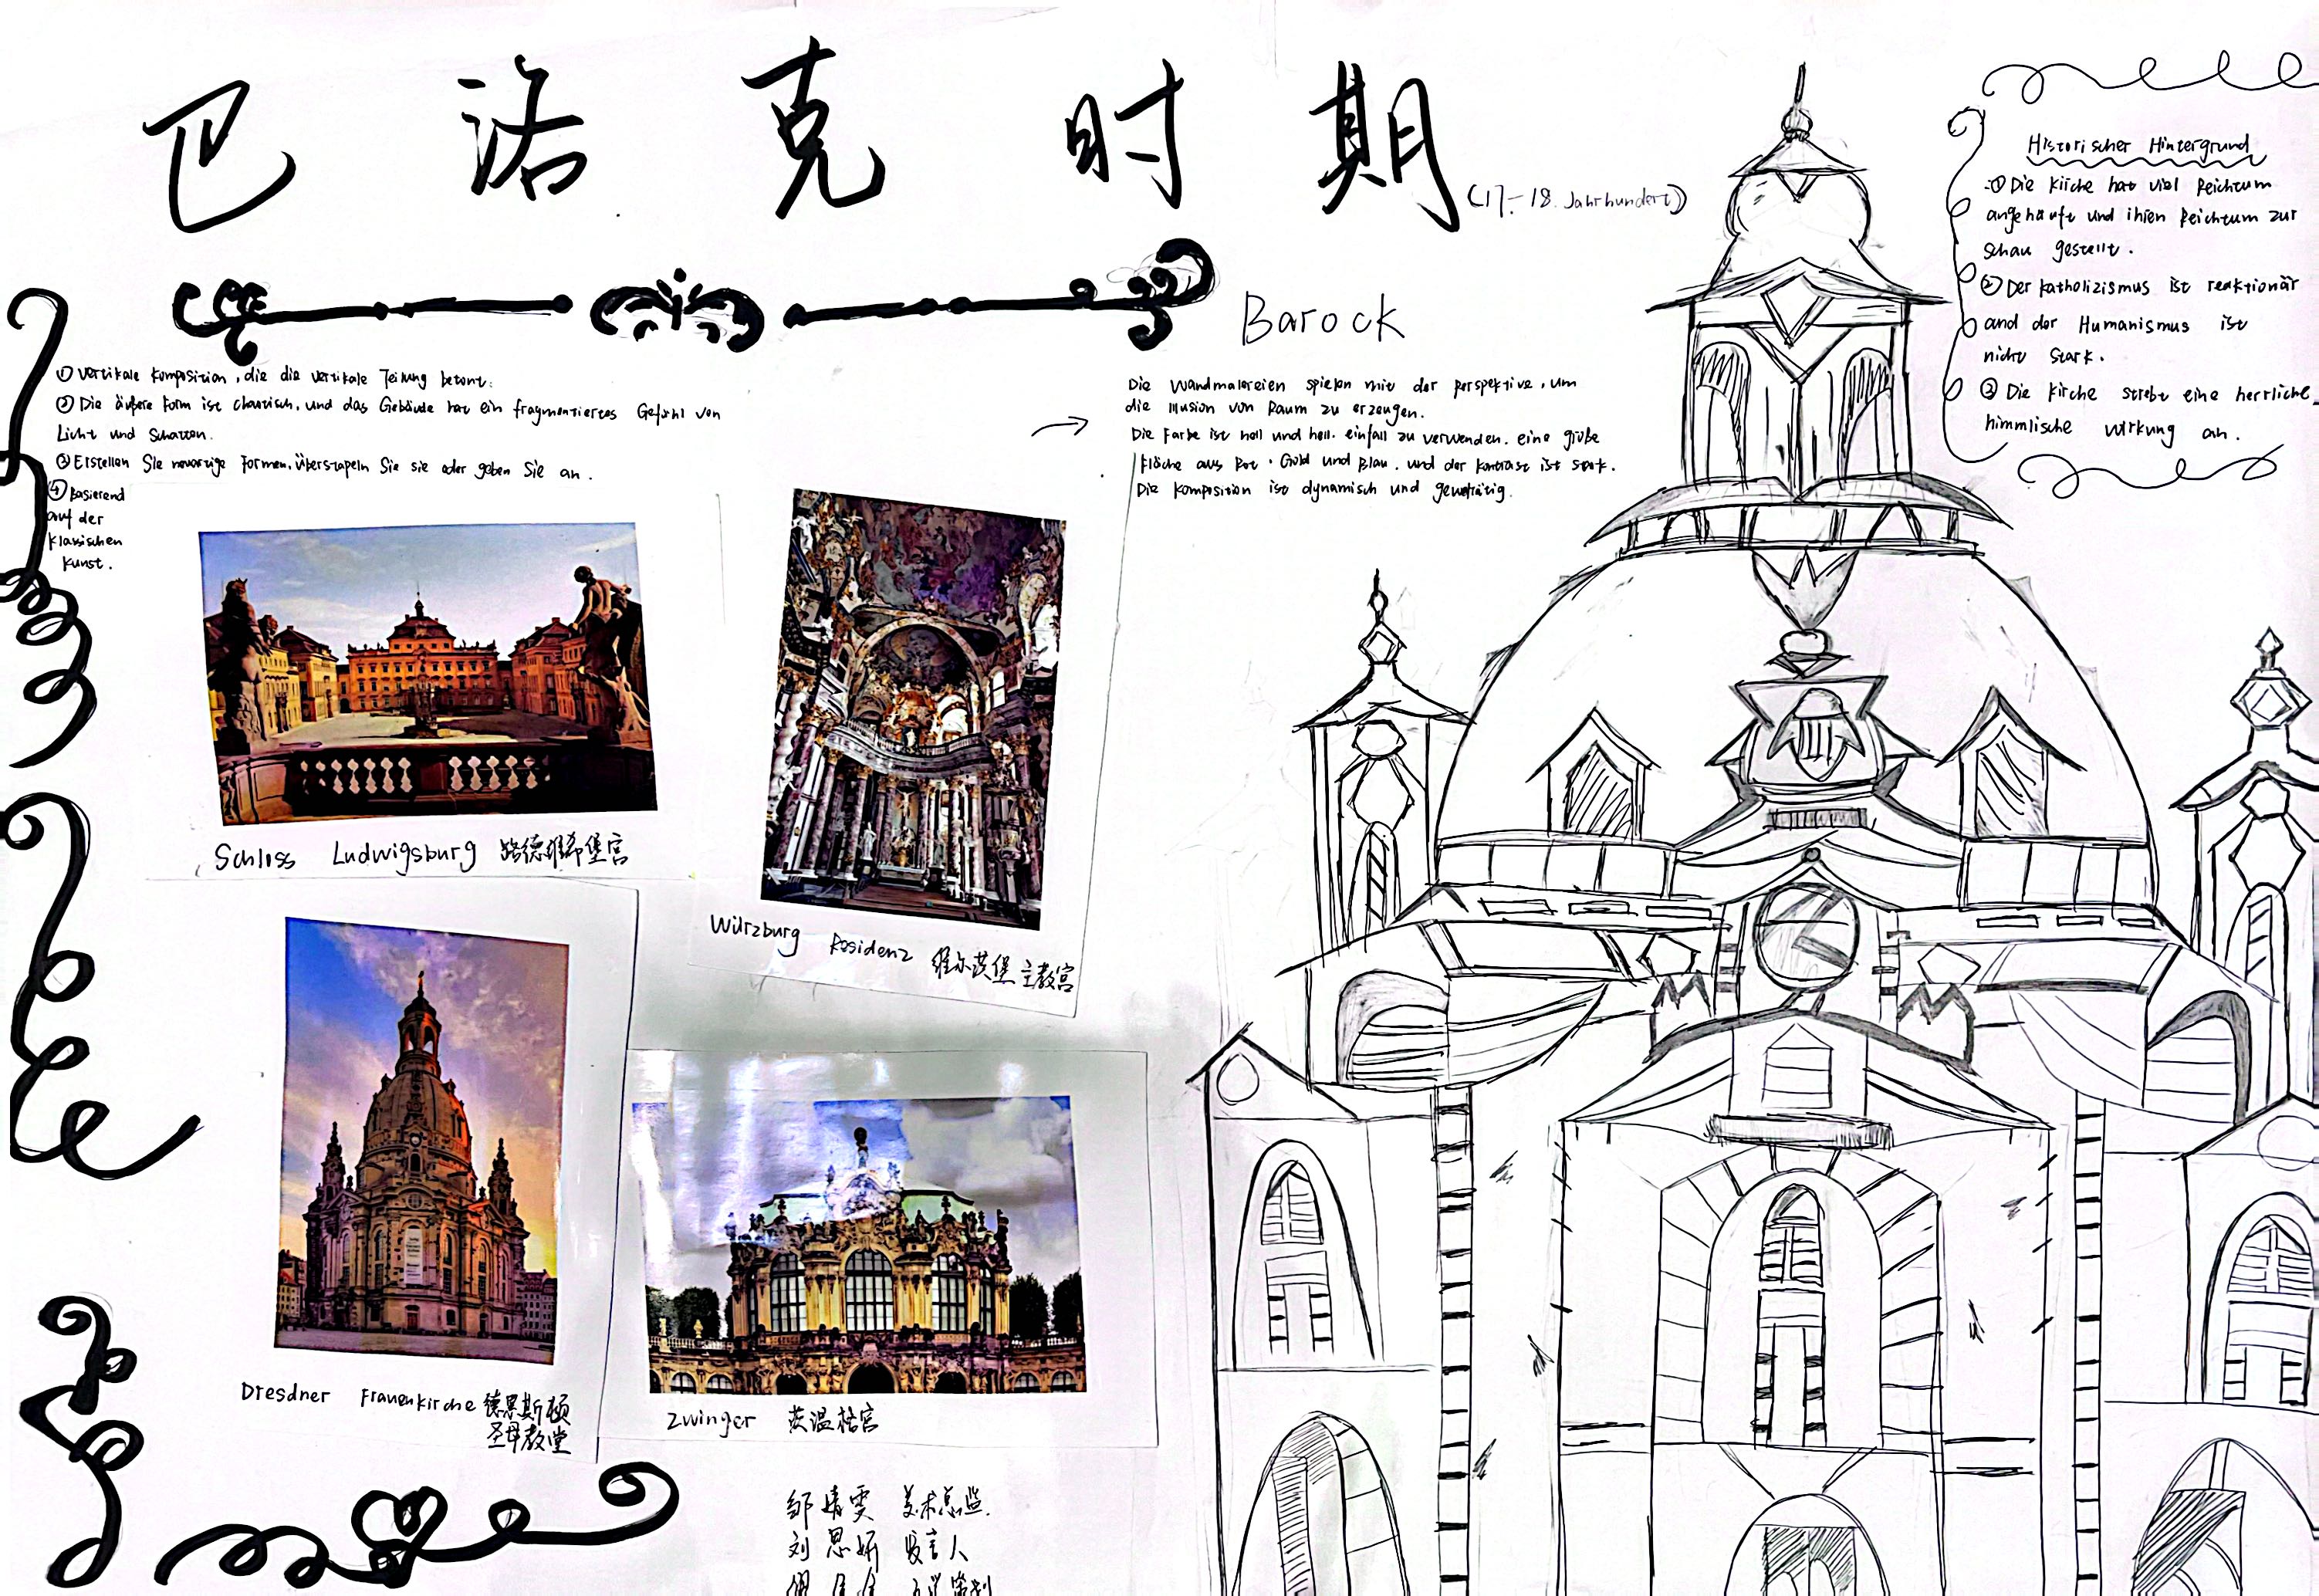 巴洛克时期
(17.-18. Jahrhundert)
Barock
① Vertikale Komposition, die die vertikale Teilung betont.
② Die äußere Form ist chaotisch, und das Gebäude hat ein fragmentiertes Gefühl von
Licht und Schatten.
③ Erstellen Sie neuartige Formen, überstapeln Sie sie oder geben Sie an.
④ Basierend
auf der
klassischen
Kunst.
Die Wandmalereien spielen mit der Perspektive, um
die Illusion von Raum zu erzeugen.
Die Farbe ist hell und hell. einfall zu verwenden. eine große
Fläche aus Rot, Gold und Blau, und der Kontrast ist stark.
Die Komposition ist dynamisch und gewalttätig.
Historischer Hintergrund
① Die Kirche hat viel Reichtum
angehäuft und ihren Reichtum zur
Schau gestellt.
② Der Katholizismus ist reaktionär
and der Humanismus ist
nicht stark.
③ Die Kirche strebt eine herrliche
himmlische Wirkung an.
Schloss Ludwigsburg 路德维希堡宫
Würzburg Residenz 维尔茨堡主教宫
Dresdner Frauenkirche 德累斯顿
圣母教堂
Zwinger 茨温格宫
邹婧雯 美术总监.
刘思妍 发言人